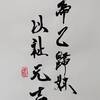 帝乙歸妹
以祉元吉